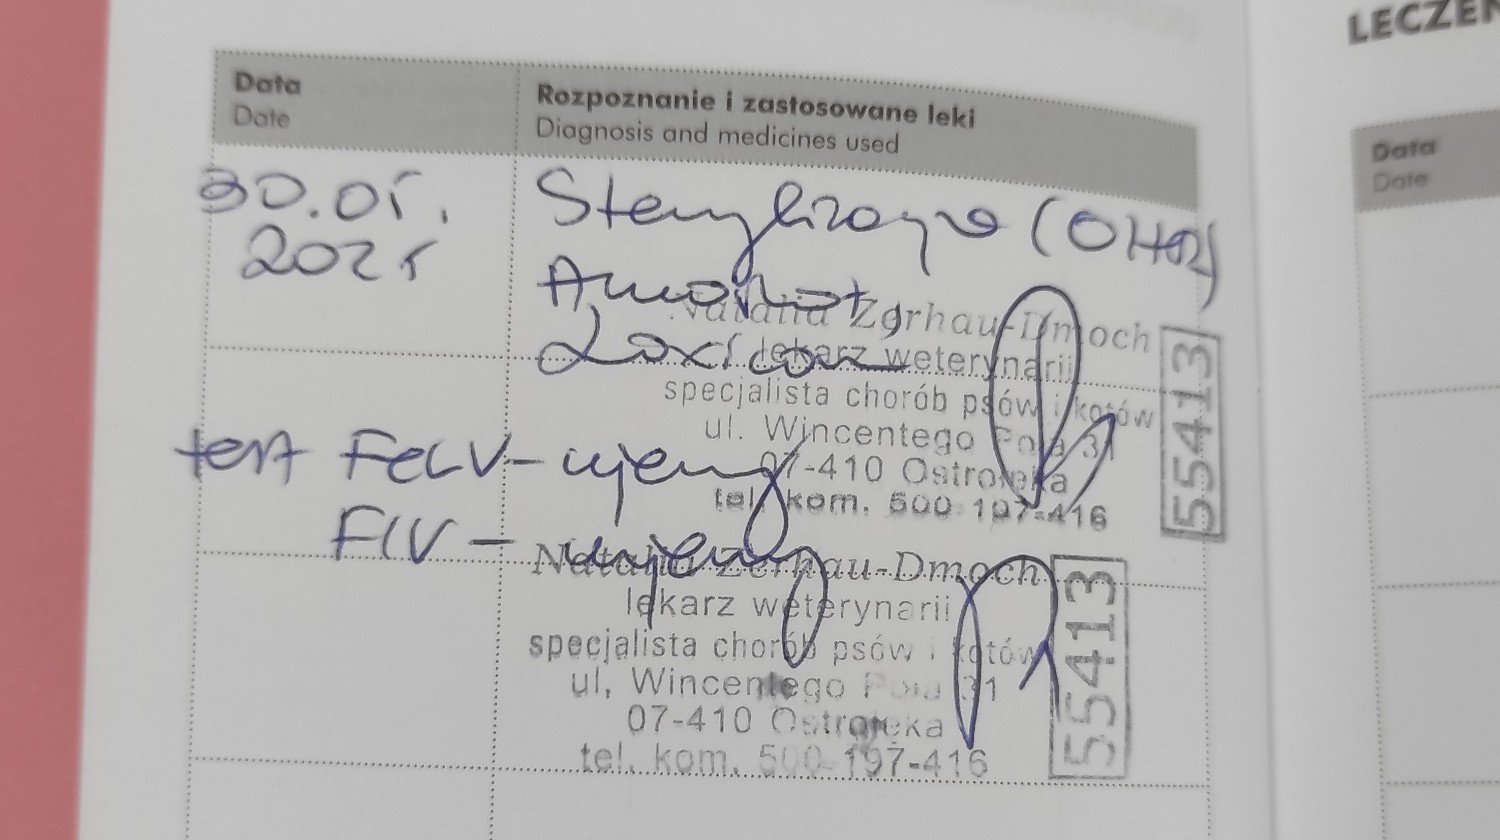 LECZEN
Data
Date
Rozpoznanie i zastosowane leki
Diagnosis and medicines used
Data
Date
30.05.
2025
Sterylizacja (OHE)
Natalia Zerhau-Dmoch
Loxicom
lekarz weterynarii
specjalista chorób psów i kotów
ul. Wincentego Pola 31
07-410 Ostrołęka
tel. kom. 500 197-416
55413
test FeLV - ujemny
FIV - ujemny
Natalia Zerhau-Dmoch
lekarz weterynarii
specjalista chorób psów i kotów
ul. Wincentego Pola 31
07-410 Ostrołęka
tel. kom. 500-197-416
55413